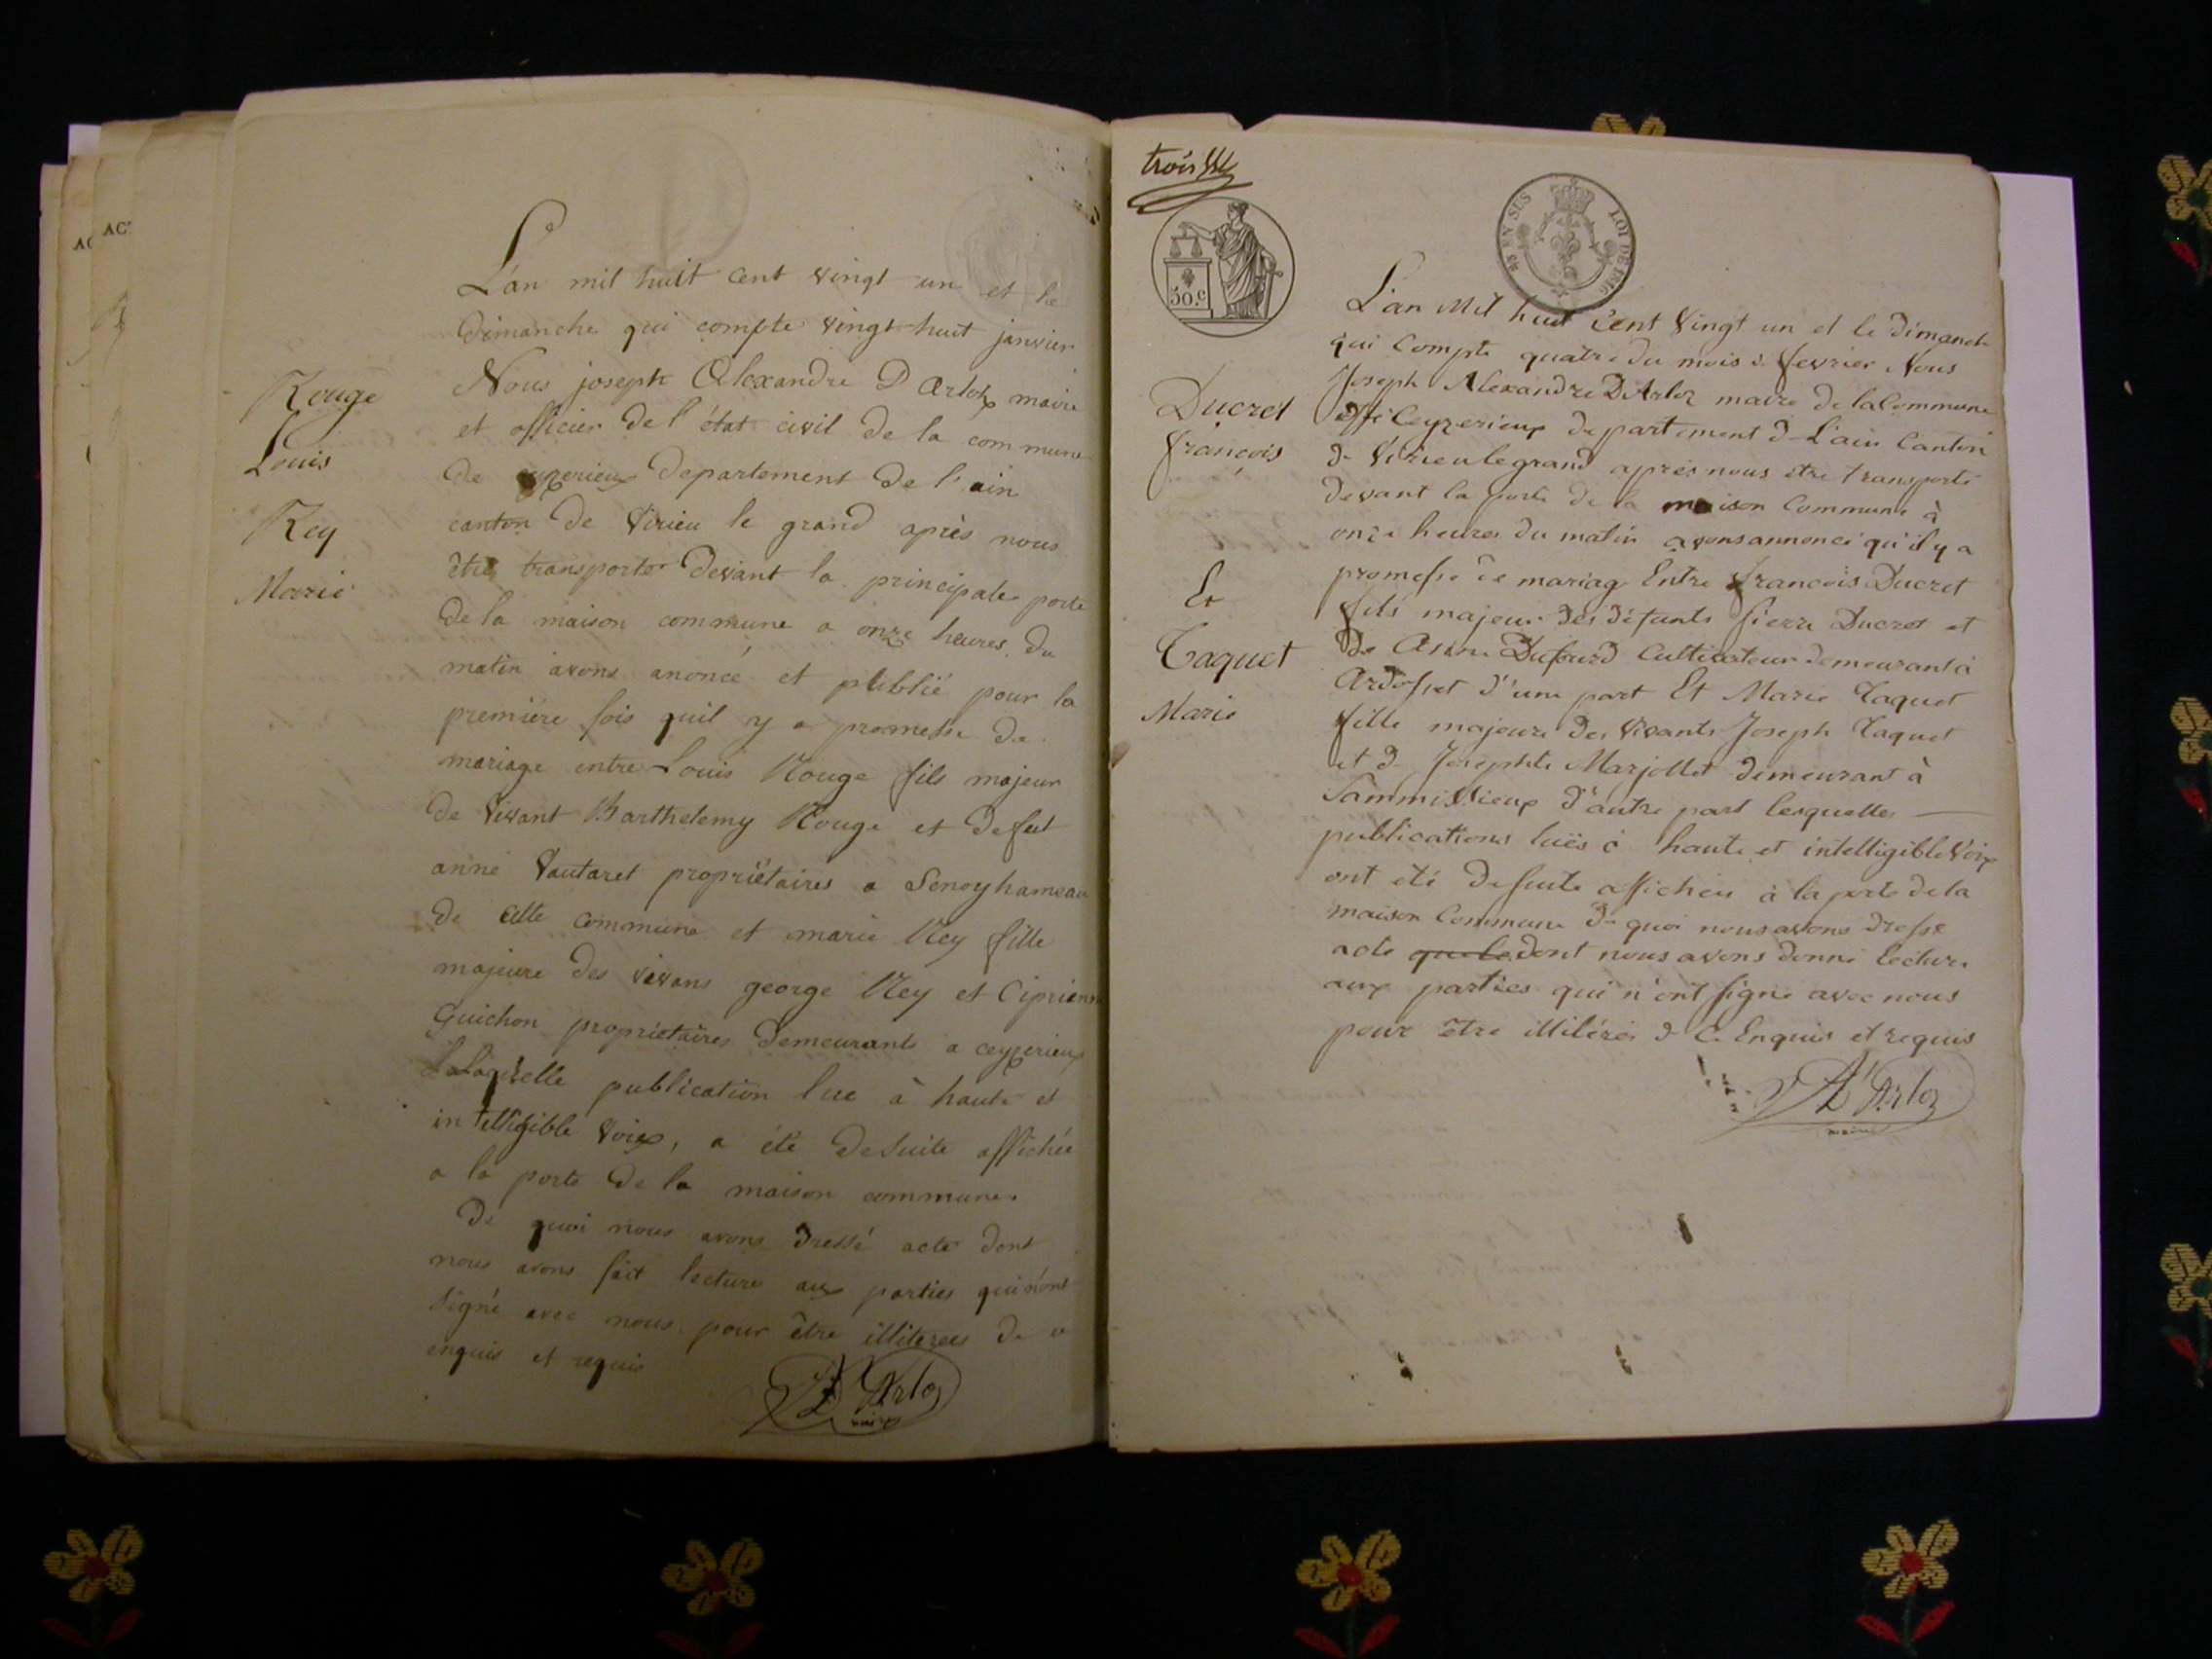 AC
ACT
Rouge
Louis
Rey
Marie
L'an mil huit cent vingt un et le
Dimanche qui compte vingt huit janvier
Nous joseph Alexandre D Arloz maire
et officier de l'état civil de la commune
de ceyzerieux Departement de l'ain
canton de Virieu le grand après nous
être transporter devant la principale porte
de la maison commune a onze heures du
matin avons anoncé et publié pour la
première fois quil y a promesse de
mariage entre Louis Rouge fils majeur
de vivant Barthelemy Rouge et de feut
anne Vautaret propriëtaires a Senoy hameau
de cette commune et marie Rey fille
majeure des vivans george Rey et Ciprienne
Guichon propriétaires demeurants a ceyzerieux
Laquelle publication lue à haute et
intelligible voix, a été desuite affichée
a la porte de la maison commune.
De quoi nous avons dressé acte dont
nous avons fait lecture aux parties qui n'ont
signé avec nous pour être illiterees de ce
enquis et requis
D'Arloz
maire
trois
30.c
EN SUS
LOI DE 1816
Ducret
françois
Et
Taquet
Marie
L'an Mil huit Cent Vingt un et le Dimanche
qui Compte quatre du mois de fevrier Nous
Joseph Alexandre D'Arloz maire de la Commune
de Ceyzerieux departement de L'ain Canton
de Virieu le grand après nous être transporté
devant la porte de la maison Commune à
onze heures du matin avons annoncé qu'il y a
promesse de mariag Entre francois Ducret
fils majeur des défunts pierre Ducret et
de Dufourd Cultivateur demeurant à
Ardosset d'une part Et Marie Taquet
fille majeure des vivants Joseph Taquet
et de Josephte Marjollet demeurant à
Sammissieux d'autre part lesquelles
publications luës à haute et intelligible Voix
ont été desuite affichées à la porte de la
maison Commune de quoi nous avons dressé
acte dont nous avons donné lecture
aux parties qui n'ont signé avec nous
pour être illitérés de Ce Enquis et requis
D'Arloz
maire